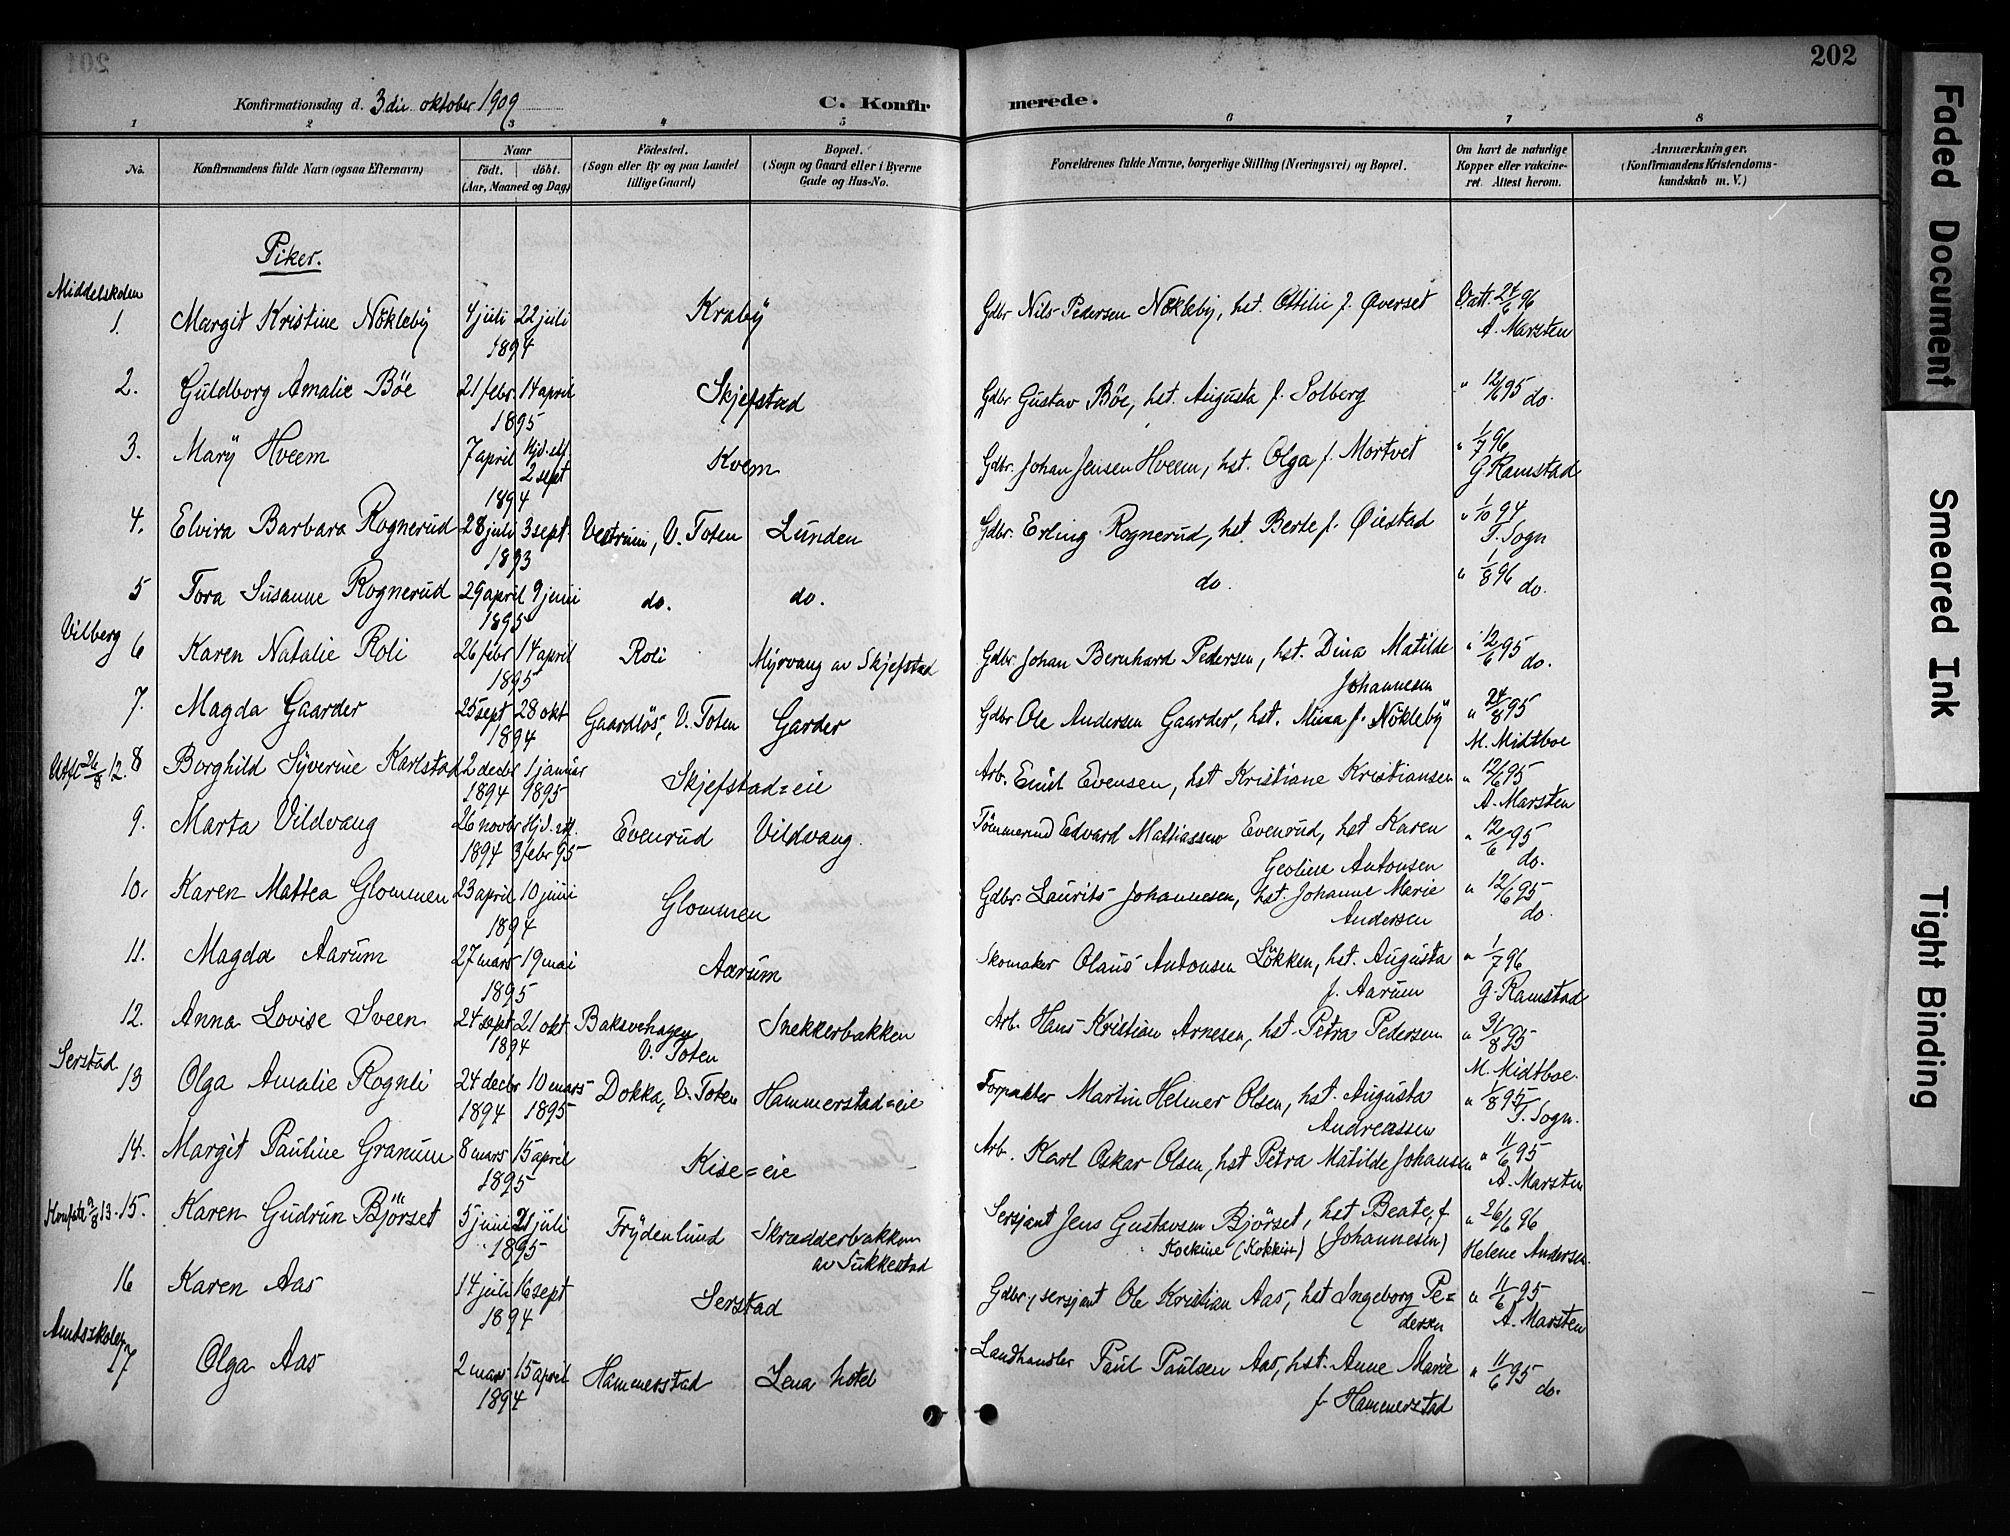 202
Konfirmationsdag d. 3die oktober 1909
C. Konfirmerede.
1 2 3 4 5 6 7 8
No.
Konfirmandens fulde Navn (ogsaa Efternavn)
Naar
födt. döbt.
(Aar, Maaned og Dag)
Födested.
(Sogn eller By og paa Landet
tillige Gaard)
Bopæl.
(Sogn og Gaard eller i Byerne
Gade og Hus-No.
Forældrenes fulde Navne, borgerlige Stilling (Næringsvei) og Bopæl.
Om havt de naturlige
Kopper eller vakcine-
ret. Attest herom.
Anmærkninger.
(Konfirmandens Kristendoms-
kundskab m. V.)
Piker.
Middelskolen
1. Margit Kristine Nökleby 4 juli 22 juli 1894 Kraby Gdbr Nils Pedersen Nökleby, hst. Ottilie f. Øverset Vatt. 24/6 96 A. Marsten
2. Guldborg Amalie Böe 21 febr. 14 april 1895 Skjefstad Gdbr Gustav Böe, hst. Augusta f. Solberg " 12/6 95 do.
3. Mary Hveem 7 april Hjd. stf. 2 sept 1894 Kvem Gdbr. Johan Jensen Hveem, hst. Olga f. Mortvet " 1/7 96 G Ramstad
4. Elvira Barbara Rognerud 28 juli 3 sept. 1893 Vestrum, V. Toten Lunden Gdbr. Erling Rognerud, hst Berte f. Øiestad " 1/10 94 T. Sogn
5 Tora Susanne Rognerud 29 april 9 juni 1895 do. do. do. " 1/8 96 do.
Vilberg
6 Karen Natalie Roli 26 febr 14 april 1895 Roli Myrvang av Skjefstad Gdbr. Johan Bernhard Pedersen, hst. Dina Matilde Johannesen " 12/6 95 do.
7. Magda Gaarder 25 sept 28 okt 1894 Gaardlös, V. Toten Garder Gdbr Ole Andersen Gaarder, hst. Mina f. Nökleby " 24/8 95 M. Midtboe
Utfl 26/8 12. 8 Borghild Syverine Karlstad 2 decbr 1894 1 januar 1895 Skjefstad=eie Arb. Emil Evensen, hst Kristiane Kristiansen " 12/6 95 A. Marsten
9. Marta Vildvang 26 novbr 1894 Hjd. stf. 3 febr 95 Evenrud Vildvang. Tömmermd Edvard Mathiassen Evenrud, hst Karen Geoline Antonsen " 12/6 95 do.
10. Karen Mattea Glommen 23 april 10 juni 1894 Glommen Gdbr. Laurits Johannesen, hst. Johanne Marie Andersen " 12/6 95 do.
11. Magda Aarum 27 mars 19 mai 1895 Aarum Skomaker Olaus Antonsen Lökken, hst. Augusta f. Aarum " 1/7 96 G. Ramstad
12. Anna Lovise Sveen 24 sept 21 okt 1894 Baksvehagen V. Toten Snekkerbakken Arb. Hans Kristian Arnesen, hst. Petra Pedersen " 31/8 95 M. Midtboe.
Serstad
13 Olga Amalie Rognli 24 decbr 1894 10 mars 1895 Dokka, V. Toten Hammerstad=eie Forpakter Martin Helmer Olsen, hst. Augusta Andreassen " 1/8 95 T. Sogn.
14. Margit Pauline Granum 8 mars 15 april 1895 Kise=eie Arb. Karl Oskar Olsen, hst Petra Matilde Johansen " 11/6 95 A. Marsten
15. Karen Gudrun Björset 5 juni 21 juli 1895 Frydenlund Skrædderbakken av Sukkestad Sersjant Jens Gustavsen Bjørset, hst Beate, f. Kockine (Kokkin) (Johannesen) " 26/6 96 Helene Andersen.
16 Karen Aas 14 juli 16 sept 1894 Serstad Gdbr, sersjant Ole Kristian Aas, hst Ingeborg Pe=dersen " 11/6 95 A. Marsten
Amtsskolen
17 Olga Aas 2 mars 15 april 1894 Hammerstad Lena hotel Landhandler Paul Paulsen Aas, hst. Anne Marie f. Hammerstad " 11/6 95 do.
Faded Document
Smeared Ink
Tight Binding